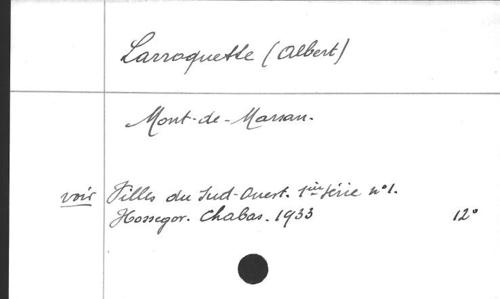 Larroquette (Albert)
Mont-de-Marsan.
voir Villes du Sud-Ouest. 1ère série n°1.
Hossegor. Chabas. 1933 12°